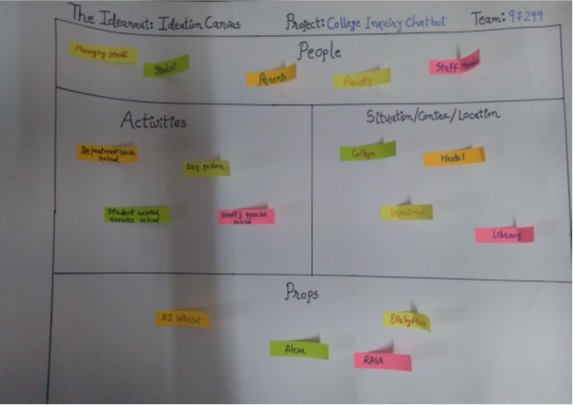 The Ideanaut: Ideation Canvas Project: College Inquiry Chatbot Team: 97299
People
Managing Staff
Student
Parents
Faculty
Staff
Activities
Department
Solved
Easy
Student related
Solved
Staff's
Solved
Situation/Contex/Location
College
Hostel
Department
Library
Props
AI
Alexa
RASA